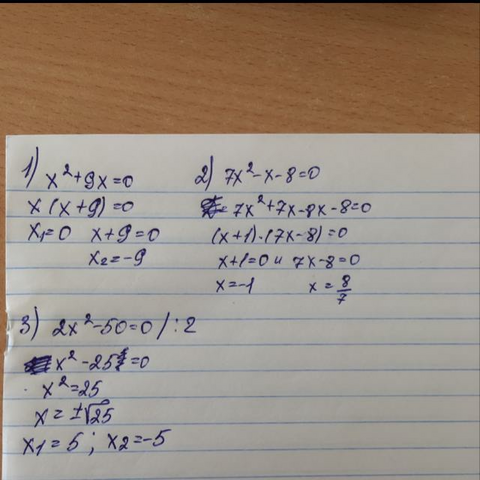 1) x²+9x=0
x(x+9)=0
x₁=0 x+9=0
x₂=-9
2) 7x²-x-8=0
=7x²+7x-8x-8=0
(x+1)·(7x-8)=0
x+1=0 и 7x-8=0
x=-1 x=8/7
3) 2x²-50=0 /:2
x²-25=0
x²=25
x=±√25
x₁=5; x₂=-5